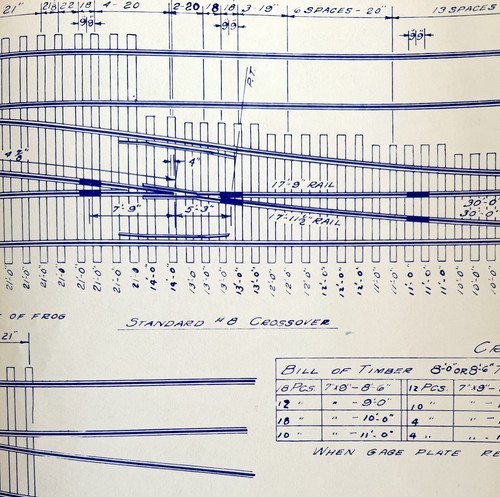 21" 21 22 18 4-20 2-20 18 18 3-19" 6 SPACES-20" 13 SPACES
9" 9" 9" 9" 9" 9"
P.T.
4"
17'-9" RAIL
30'-0"
7'-9" 5'-3"
17'-11½" RAIL
30'-0"
21'-0" 21'-0" 21'-0" 21'-0" 21'-0" 21'-0" 21'-0" 21'-0" 14'-0" 14'-0" 13'-0" 13'-0" 13'-0" 13'-0" 13'-0" 12'-0" 12'-0" 12'-0" 12'-0" 12'-0" 12'-0" 11'-0" 11'-0" 11'-0" 11'-0" 11'-0" 10'-0" 10'-0" 10'-0"
OF FROG
STANDARD #8 CROSSOVER
21"
BILL OF TIMBER 8'-0" OR 8'-6"
18 PCS. 7"x9" - 8'-6" 12 PCS. 7"x9"
12 " " - 9'-0" 10 " "
18 " " - 10'-0" 4 " "
10 " " - 11'-0" 4 " "
WHEN GAGE PLATE